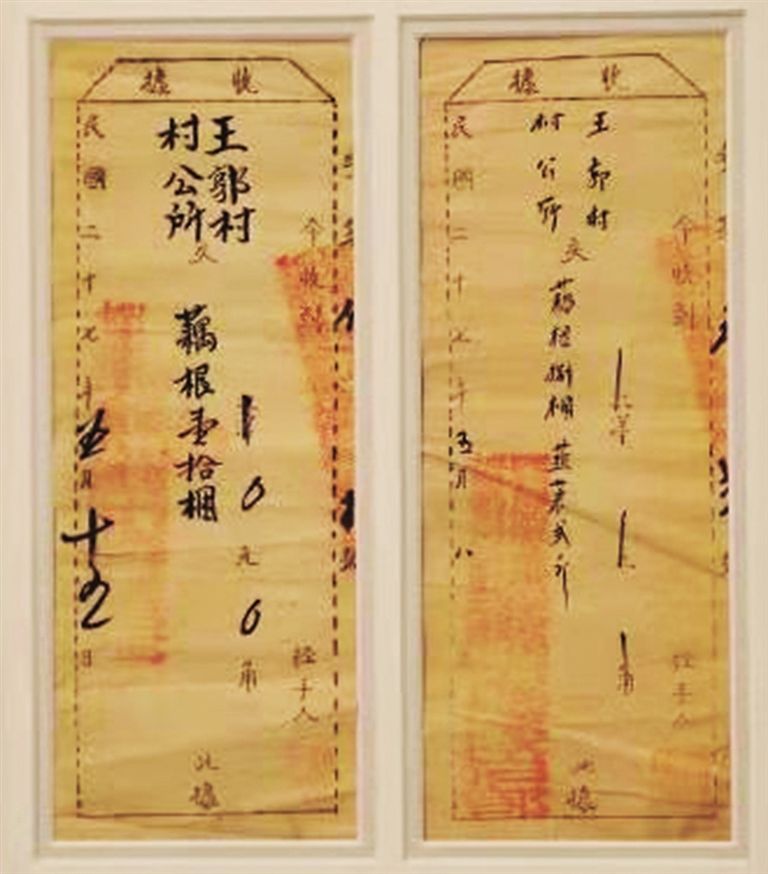 收據
今收到
王郭村
村公所交
藕根壹拾捆
10元0角
經手人
此據
民國二十七年五月十五日
收據
今收到
王郭村
村公所交
藕根捌捆韮菜弍斤
洋
角
經手人
此據
民國二十七年五月八